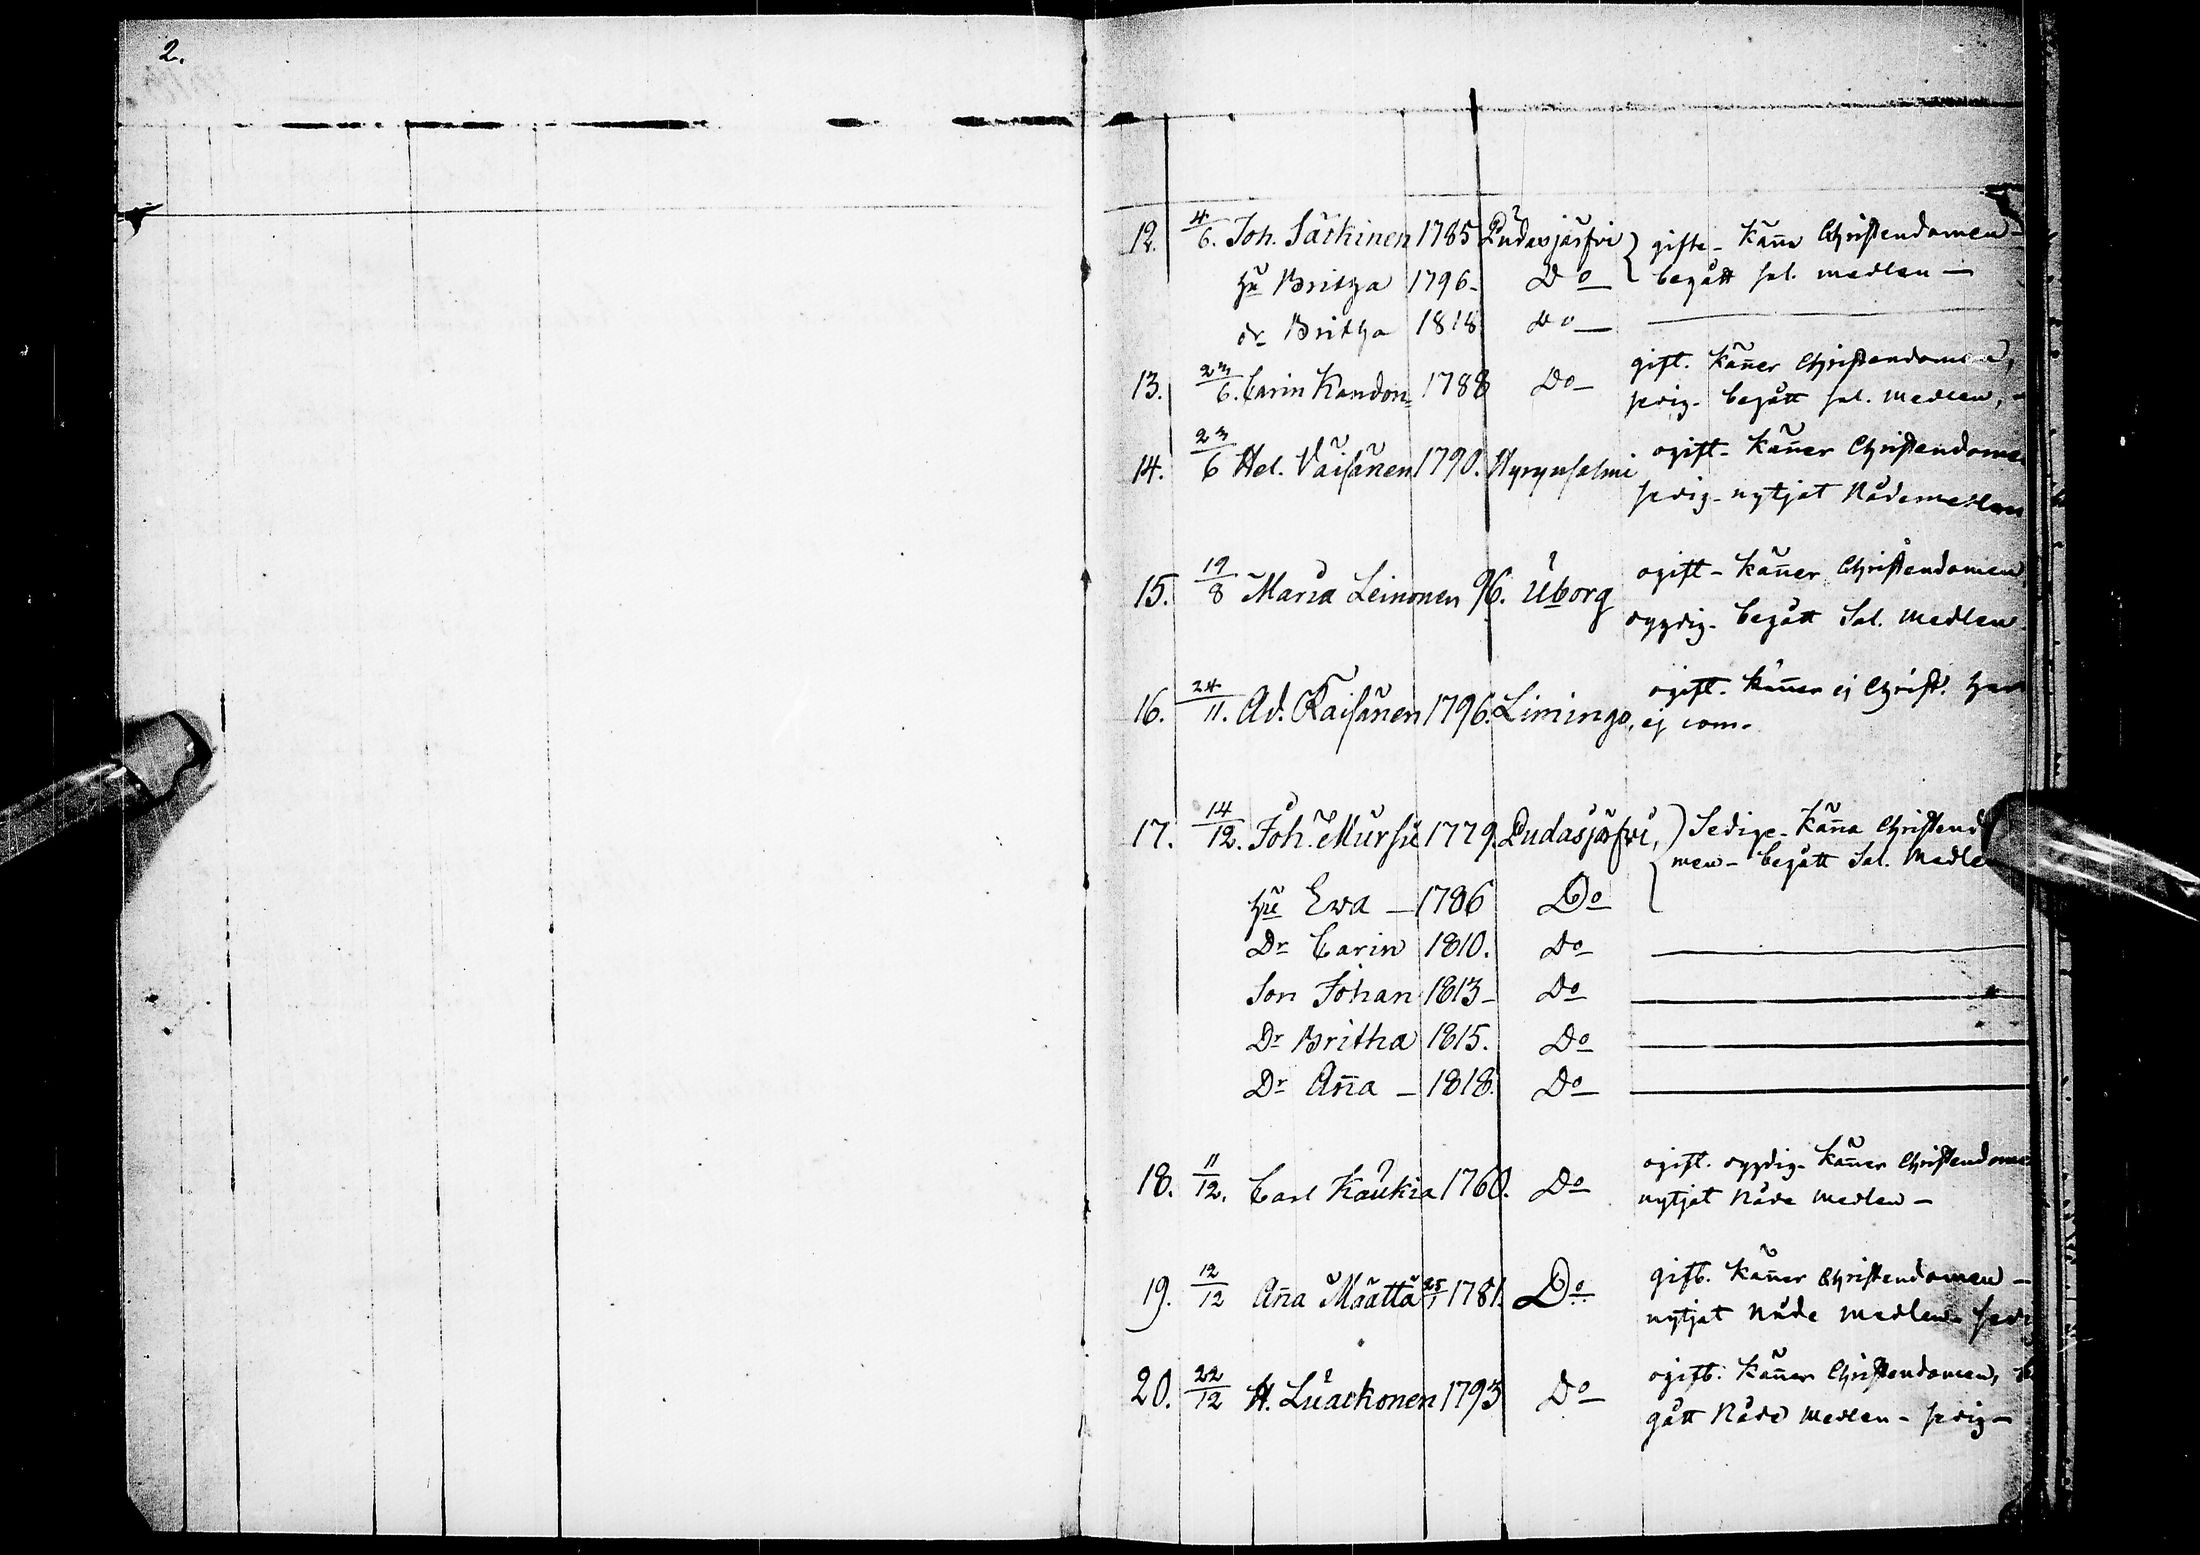 2.
12. 4/6. Joh. Särkinen 1785 Pudasjärfvi gifte - Käña Christendomen -
hu Britha 1796- Do begått sal. medlen -
dr Britha 1818 do
13. 23/6. Carin Kandon= 1788 Do gift. Käñer Christendomen,
sedig. begått sal. medlen, -
14. 23/6 Hel. Väisänen 1790. Hyrynsalmi ogift - Käñer Christendome
sedig - nytjat Nådemedlen
15. 19/8 Maria Leinonen 96. Uborg ogift - Käñer Christendomen
dygdig - begått Sal. Medlen
16. 24/11. Ad. Raisänen 1796. Limingo, ogift. Käñer ej Christ. har
ej com.
17. 14/12. Joh. Mursu 1779. Pudasjärfvi, Sedige - Käña Christend
men - begått Sal. Medle
hu Ewa - 1786 Do
Dr Carin 1810. Do
Son Johan 1813 - Do
Dr Britha 1815. Do
Dr Aña - 1818. Do
18. 11/12. Carl Kaukia 1760. Do ogift. dygdig - Käñer Christendome
nytjat Nåde medlen -
19. 12/12 Aña Määttä 25/1 1781. Do gift. Käñer Christendomen -
nytjat Nåde medlen. sedi
20. 22/12 H. Luackonen 1793 Do ogift. Käñer Christendomen,
gått Nåde medlen - sedig -